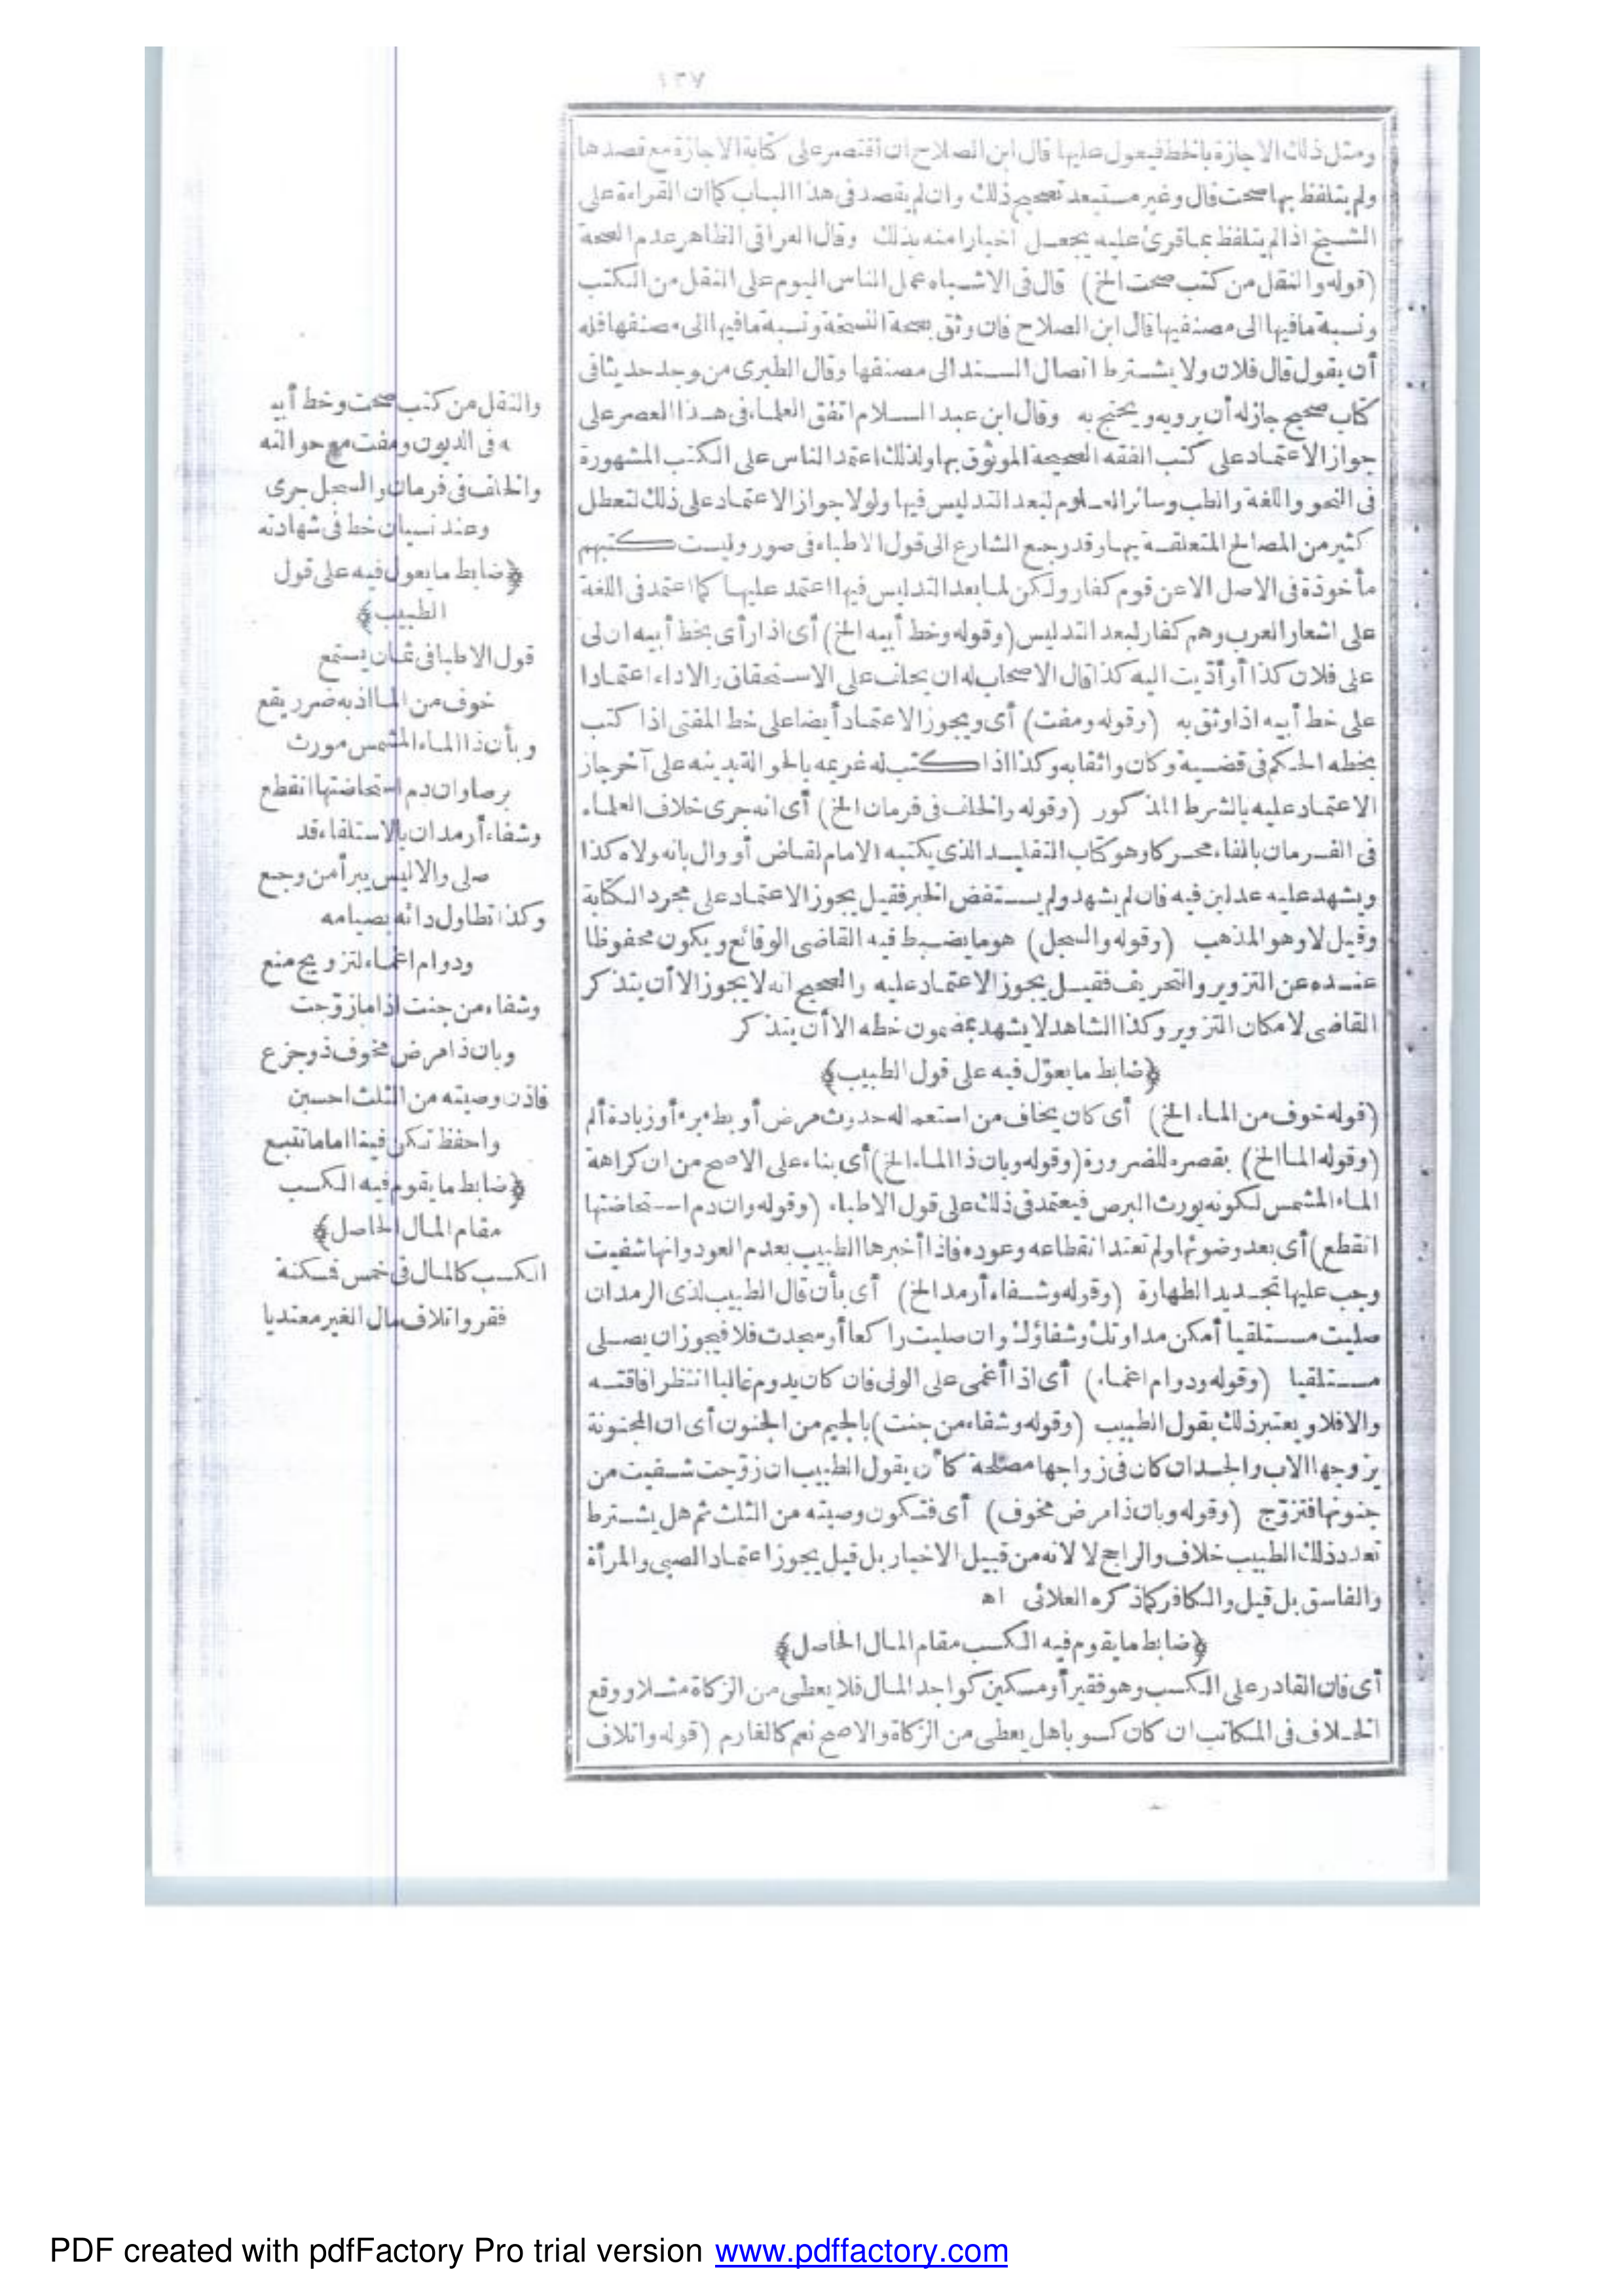 ١٣٧
ومثل ذلك الاجازة بالخط فيعول عليها قال ابن الصلاح ان اقتصر على كتابة الاجازة مع قصدها
ولم يتلفظ بها صحت قال وغير مستبعد تصحيح ذلك وان لم يقصد فى هذا الباب كما ان القراءة على
الشيخ اذا لم يتلفظ بما قرئ عليه يجعل اخبارا منه بذلك وقال العراقى الظاهر عدم الصحة
(قوله والنقل من كتب صحت الخ) قال فى الاشباه عمل الناس اليوم على النقل من الكتب
ونسبة ما فيها الى مصنفيها قال ابن الصلاح فان وثق بصحة النسخة ونسبة ما فيها الى مصنفها فله
أن يقول قال فلان ولا يشترط اتصال السند الى مصنفها وقال الطبرى من وجد حديثا فى
كتاب صحيح جاز له أن يرويه ويحتج به وقال ابن عبد السلام اتفق العلماء فى هذا العصر على
جواز الاعتماد على كتب الفقه الصحيحة الموثوق بها ولذلك اعتمد الناس على الكتب المشهورة
فى النحو واللغة والطب وسائر العلوم لبعد التدليس فيها ولولا جواز الاعتماد على ذلك لتعطل
كثير من المصالح المتعلقة بها وقد رجع الشارع الى قول الاطباء فى صور وليست كتبهم
مأخوذة فى الاصل الا عن قوم كفار ولكن لما بعد التدليس فيها اعتمد عليها كما اعتمد فى اللغة
على اشعار العرب وهم كفار لبعد التدليس (وقوله وخط أبيه الخ) أى اذا رأى بخط أبيه ان لى
على فلان كذا أو أديت اليه كذا قال الاصحاب له ان يحلف على الاستحقاق والاداء اعتمادا
على خط أبيه اذا وثق به (وقوله ومفت) أى ويجوز الاعتماد أيضا على خط المفتى اذا كتب
بخطه الحكم فى قضية وكان واثقا به وكذا اذا كتب له غريمه بالحوالة بدينه على آخر جاز
الاعتماد عليه بالشرط المذكور (وقوله والخلف فى فرمان الخ) أى انه جرى خلاف العلماء
فى الفرمان بالفاء محركا وهو كتاب التقليد الذى يكتبه الامام لقاض أو وال بانه ولاه كذا
ويشهد عليه عدلين فيه فان لم يشهد ولم يستفض الخبر فقيل يجوز الاعتماد على مجرد الكتابة
وقيل لا وهو المذهب (وقوله والسجل) هو ما يضبط فيه القاضى الوقائع ويكون محفوظا
عنده عن التزوير والتحريف فقيل يجوز الاعتماد عليه والصحيح انه لا يجوز الا أن يتذكر
القاضى لامكان التزوير وكذا الشاهد لا يشهد بمضمون خطه الا أن يتذكر
﴿ضابط ما يعوّل فيه على قول الطبيب﴾
(قوله خوف من الماء الخ) أى كان يخاف من استعماله حدوث مرض أو بطء برء أو زيادة ألم
(وقوله الما الخ) بقصره للضرورة (وقوله وبان ذا الماء الخ) أى بناء على الاصح من ان كراهة
الماء المشمس لكونه يورث البرص فيعتمد فى ذلك على قول الاطباء (وقوله وان دم استحاضتها
انقطع) أى بعد وضوئها ولم تعتد انقطاعه وعوده فاذا أخبرها الطبيب بعدم العود وانها شفيت
وجب عليها تجديد الطهارة (وقوله وشفاء أرمد الخ) أى بأن قال الطبيب لذى الرمد ان
صليت مستلقيا أمكن مداوتك وشفاؤك وان صليت راكعا أو سجدت فلا فيجوز ان يصلى
مستلقيا (وقوله ودوام اغماء) أى اذا أغمى على الولى فان كان يدوم غالبا انتظر افاقته
والا فلا ويعتبر ذلك بقول الطبيب (وقوله وشفاء من جنت) بالجيم من الجنون أى ان المجنونة
يزوجها الاب والجد ان كان فى زواجها مصلحة كأن يقول الطبيب ان زوّجت شفيت من
جنونها فتزوّج (وقوله وبان ذا مرض مخوف) أى فتكون وصيته من الثلث ثم هل يشترط
تعدد ذلك الطبيب خلاف والراجح لا لانه من قبيل الاخبار بل قيل يجوز اعتماد الصبى والمرأة
والفاسق بل قيل والكافر كما ذكره العلائى اه
﴿ضابط ما يقوم فيه الكسب مقام المال الحاصل﴾
أى فان القادر على الكسب وهو فقير أو مسكين كواجد المال فلا يعطى من الزكاة مثلا ووقع
الخلاف فى المكاتب ان كان كسوبا هل يعطى من الزكاة والاصح نعم كالغارم (قوله واتلاف
والنقل من كتب صحت وخط أبيـ
ـه فى الديون ومفت مع حوالته
والخلف فى فرمان والسجل جرى
وعند نسيان خط فى شهادته
﴿ضابط ما يعول فيه على قول
الطبيب﴾
قول الاطبا فى ثمان يستمع
خوف من الما اذ به ضرر يقع
وبأن ذا الماء المشمس مورث
برصا وان دم استحاضتها انقطع
وشفاء أرمد ان بالاستلقاء قد
صلى والا ليس يبرأ من وجع
وكذا تطاول دائه بصيامه
ودوام اغماء لتزويج منع
وشفاء من جنت اذا ما زوّجت
وبان ذا مرض مخوف ذو جزع
فاذن وصيته من الثلث احسبن
واحفظ تكن فينا اماما تتبع
﴿ضابط ما يقوم فيه الكسب
مقام المال الحاصل﴾
الكسب كالمال فى خمس فمسكنة
فقر واتلاف مال الغير معتديا
PDF created with pdfFactory Pro trial version www.pdffactory.com